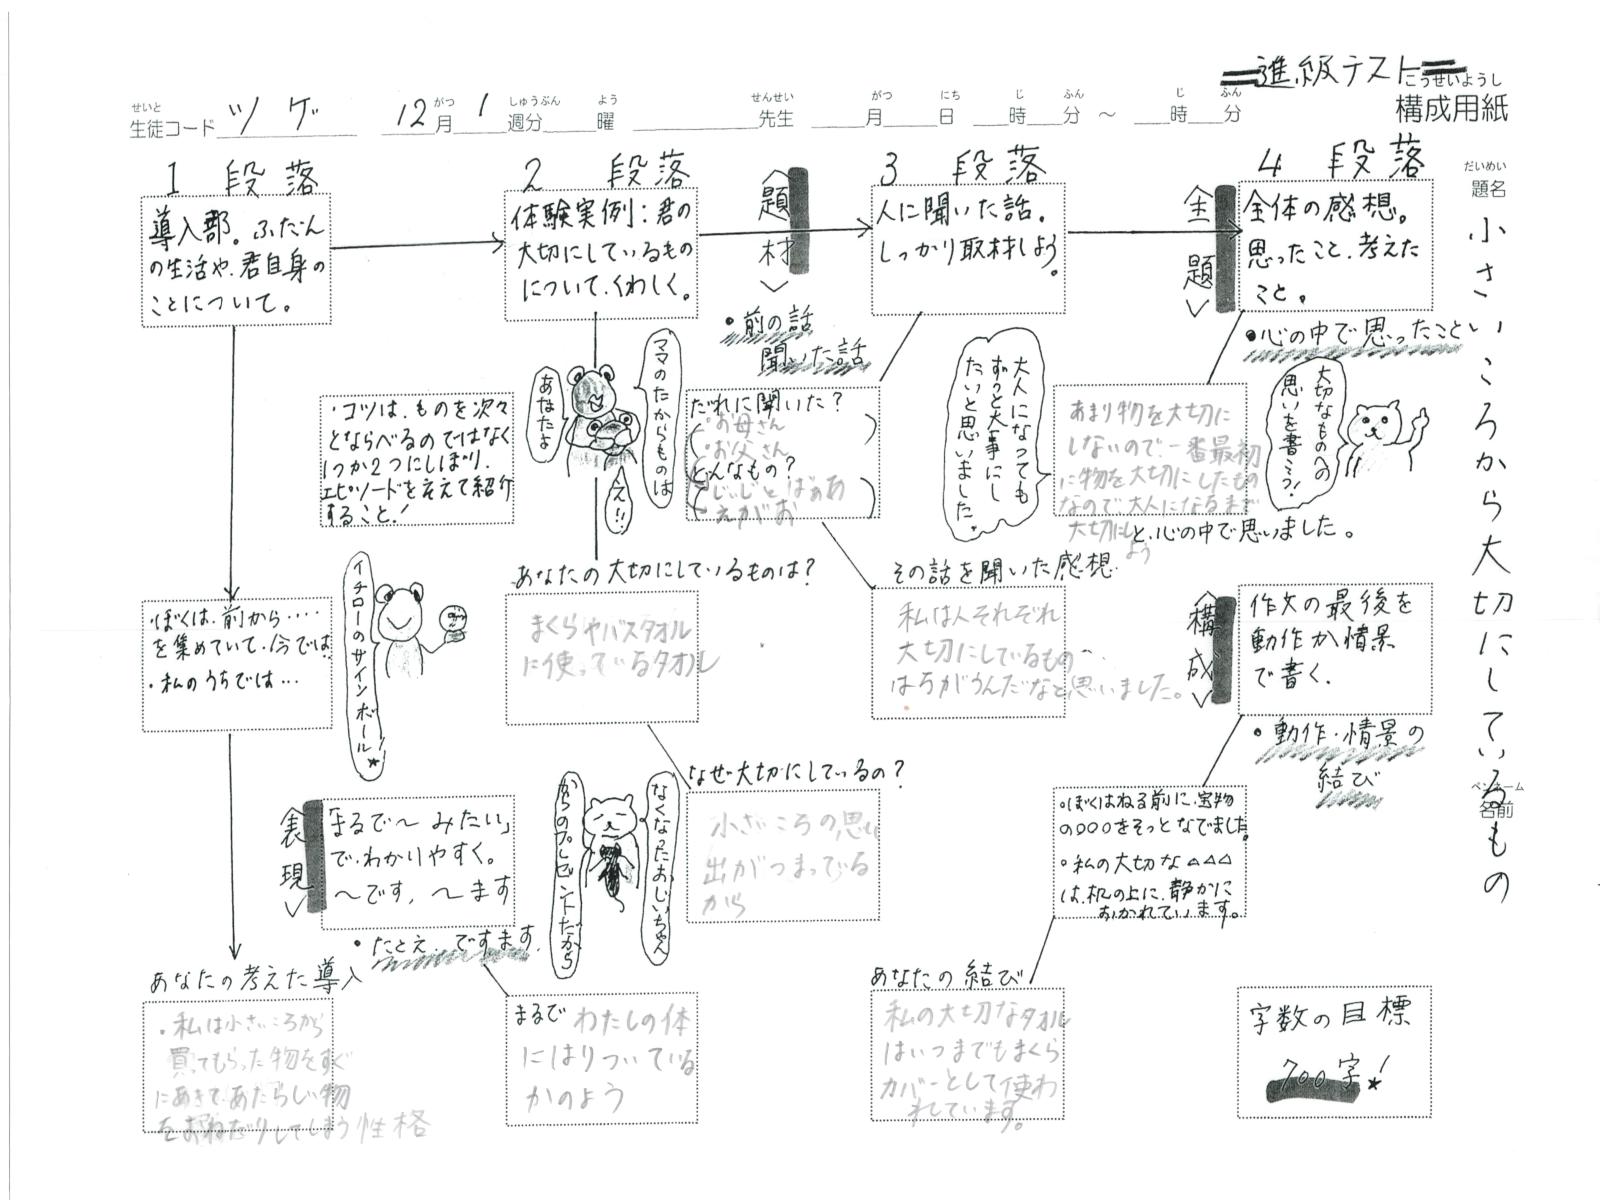 進級テスト
こうせいようし
構成用紙
せいと
生徒コード ツゲ
がつ しゅうぶん よう
12月 1週分 曜
せんせい
先生
がつ にち じ ふん じ ふん
月 日 時 分 〜 時 分
だいめい
題名
小さいころから大切にしているもの
ペンネーム
名前
1 段落
導入部。ふだん
の生活や、君自身の
ことについて。
ぼくは、前から‥‥
を集めていて、今では
・私のうちでは…
イチローのサインボール!★
あなたの考えた導入
・私は小さいころから
買ってもらった物をすぐ
にあきて、あたらしい物
をおねだりしてしまう性格
2 段落
体験実例:君の
大切にしているもの
について、くわしく。
・コツは、ものを次々
とならべるのではなく
1つか2つにしぼり、
エピソードをそえて紹介
すること!
あなたよ
ママのたからものは
え!!
あなたの大切にしているものは?
まくらやバスタオル
に使っているタオル
なぜ大切にしているの?
小さいころの思い
出がつまっている
から
なくなったおじいちゃん
からのプレゼントだから
〈表現〉
「まるで〜みたい」
で、わかりやすく。
〜です、〜ます
・たとえ、ですます
まるで わたしの体
にはりついている
かのよう
〈題材〉
・前の話
聞いた話
3 段落
人に聞いた話。
しっかり取材しよう。
だれに聞いた?
・お母さん
・お父さん
どんなもの?
・じいじとばぁあ
・えがお
その話を聞いた感想
私は人それぞれ
大切にしているもの
はちがうんだなと思いました。
〈主題〉
4 段落
全体の感想。
思ったこと、考えた
こと。
・心の中で思ったこと
大人になっても
ずっと大事にし
たいと思いました。
大切なものへの
思いを書こう!
あまり物を大切に
しないので、一番最初
に物を大切にしたもの
なので大人になるまで
大切にしよう
と、心の中で思いました。
〈構成〉
作文の最後を
動作か情景
で書く。
・動作・情景の
結び
・ぼくはねる前に、宝物
の○○○をそっとなでました。
・私の大切な△△△
は、机の上に、静かに
おかれています。
あなたの結び
私の大切なタオル
はいつまでもまくら
カバーとして使わ
れています。
字数の目標
700字!★